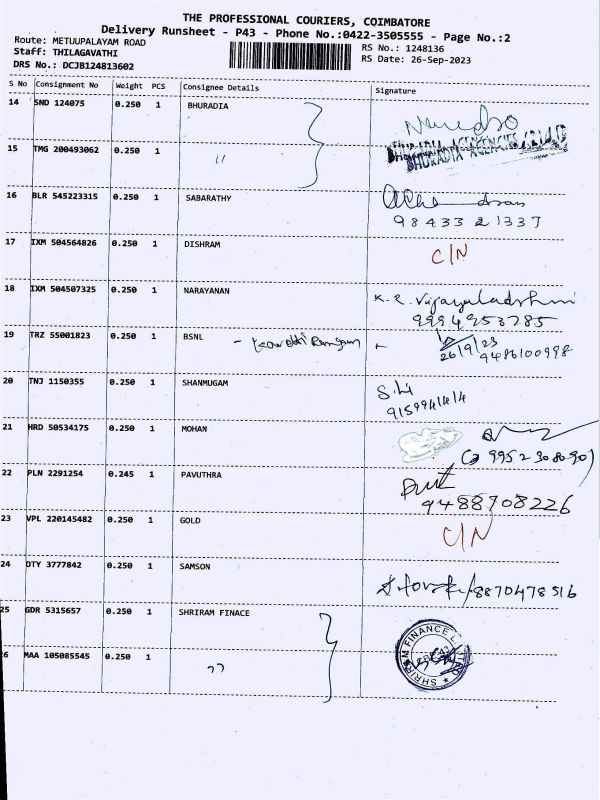 THE PROFESSIONAL COURIERS, COIMBATORE
Delivery Runsheet - P43 - Phone No.:0422-3505555 - Page No.:2
Route: METUUPALAYAM ROAD
RS No.: 1248136
Staff: THILAGAVATHI
RS Date: 26-Sep-2023
DRS No.: DCJB124813602
S No Consignment No Weight PCS Consignee Details Signature
14 SND 124075 0.250 1 BHURADIA
15 TMG 200493062 0.250 1 "
BHURADIA AGENCIES
16 BLR 545223315 0.250 1 SABARATHY
98433 21337
17 IXM 504564826 0.250 1 DISHRAM C/N
18 IXM 504507325 0.250 1 NARAYANAN K. R. Vijayaladshmi
9994953785
19 TRZ 55001823 0.250 1 BSNL
26/9/23
9486100998
20 TNJ 1150355 0.250 1 SHANMUGAM
9159941414
21 HRD 50534175 0.250 1 MOHAN
9952308090)
22 PLN 2291254 0.245 1 PAVUTHRA
9488908226
23 VPL 220145482 0.250 1 GOLD C/N
24 OTY 3777842 0.250 1 SAMSON
8870478516
25 GDR 5315657 0.250 1 SHRIRAM FINACE
SHRIRAM FINANCE LIMITED
6 MAA 105085545 0.250 1 "